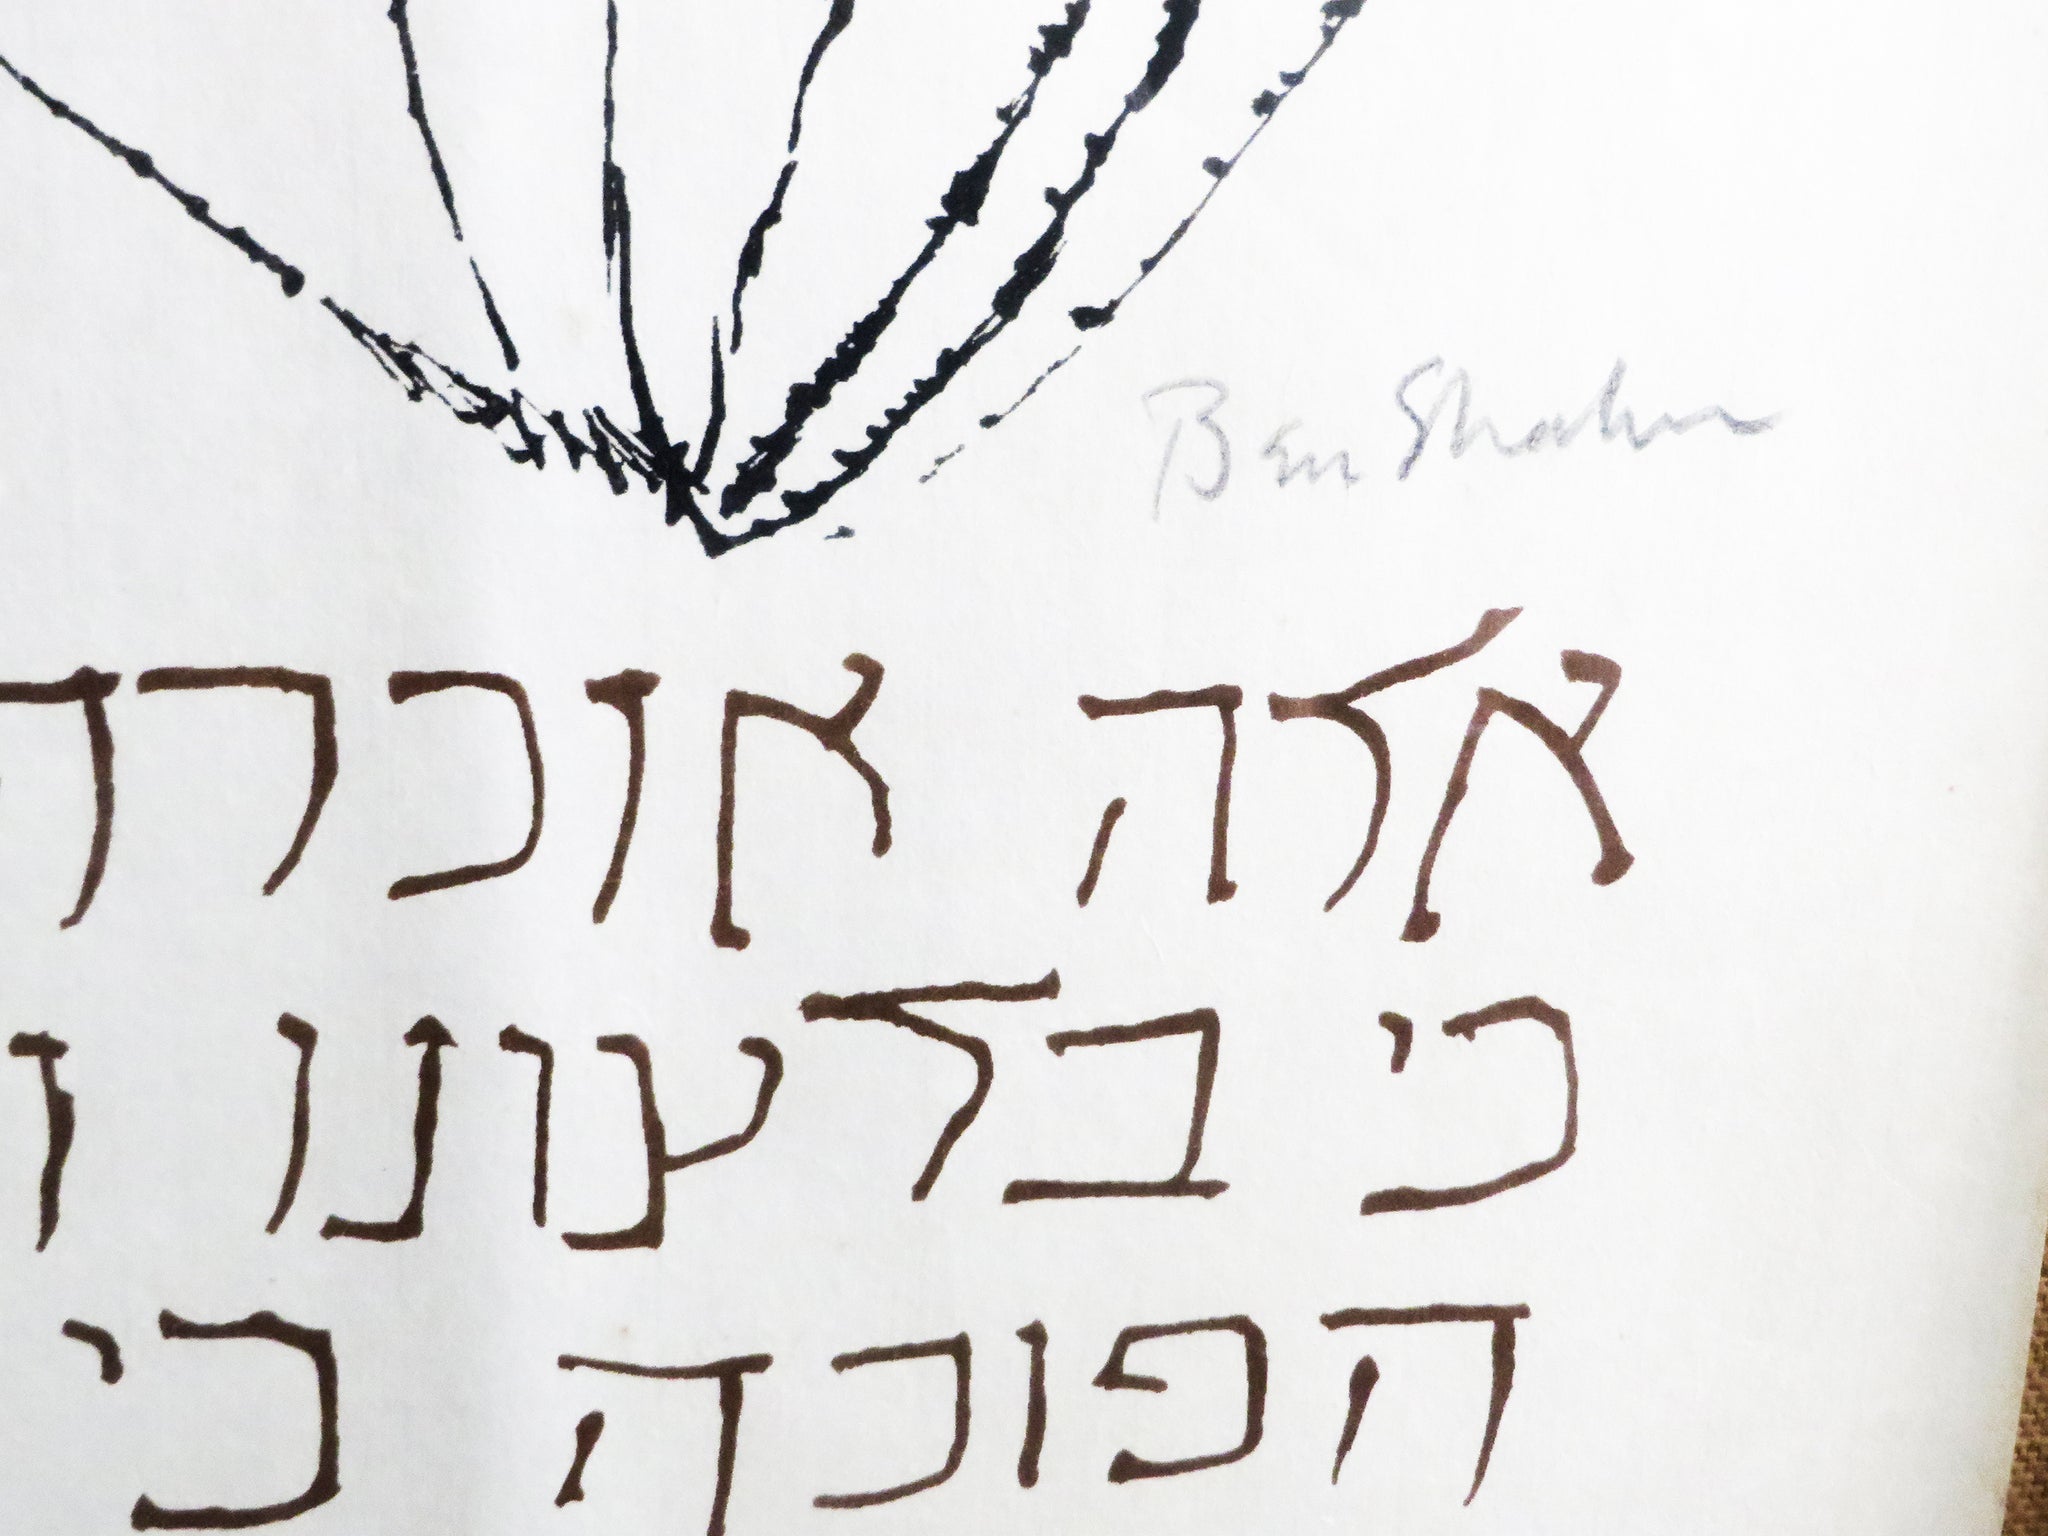 Ben Shahn
אלה אזכרה
כי בלעונו ז
הפוכה כי